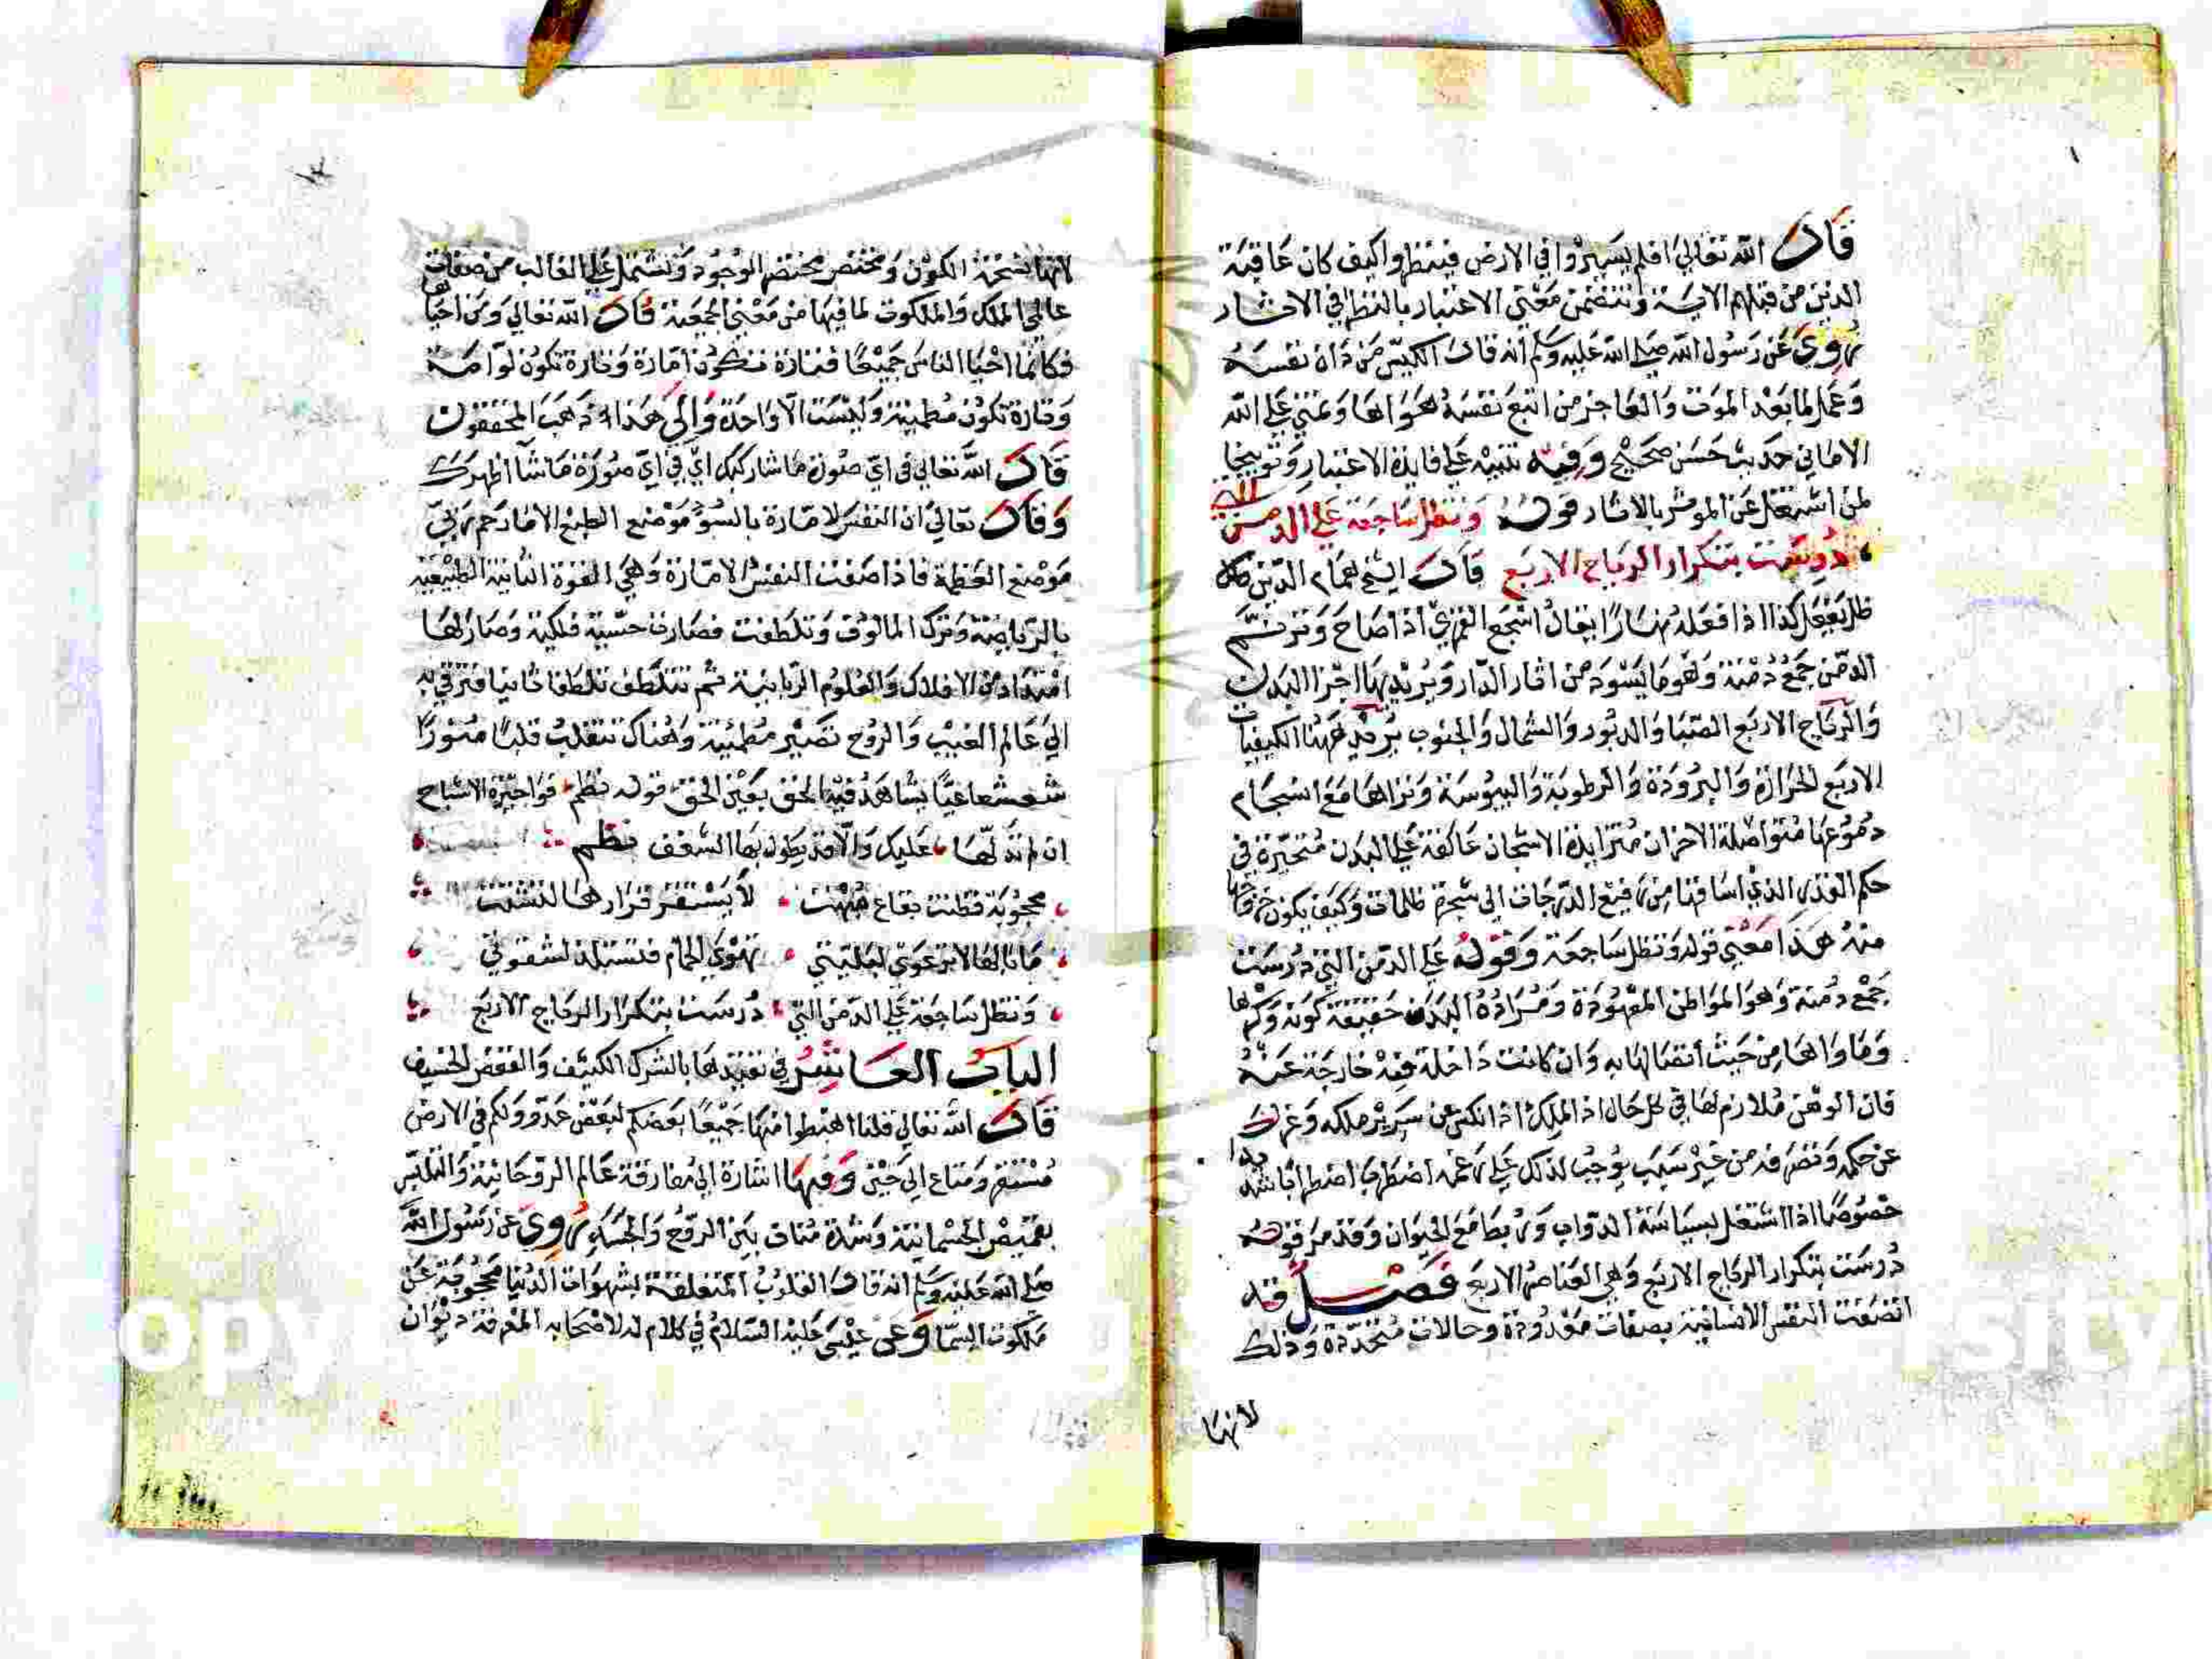 قال الله تعالى افلم يسيروا في الارض فينظروا كيف كان عاقبة
الذين من قبلهم الاية وتتضمن معنى الاعتبار بالنظر في الاثار
روي عن رسول الله صلى الله عليه وسلم انه قال الكيس من دان نفسه
وعمل لما بعد الموت والعاجز من اتبع نفسه هواها وتمنى على الله
الاماني حديث حسن صحيح وفيه تنبيه على فايدة الاعتبار وتوبيخا
لمن اشتغل عن الموثر بالاثار قوله وتظل ساجعة على الدمن التي
درست بتكرار الرياح الاربع قال الشيخ همام الدين
ظل يفعل كذا اذا فعله نهارا يقال اسجع القمري اذا صاح وترنم
الدمن جمع دمنة وهو ما يسود من اثار الدار ويريد بها اجزا البدن
والرياح الاربع الصبا والدبور والشمال والجنوب يريد ههنا الكيفيات
الاربع الحرارة والبرودة والرطوبة واليبوسة وتراها مع انسجام
دموعها متواصلة الاحزان متزايدة الاشجان عاكفة على البدن متحيرة في
حكم القدر الذي اساقها من رفيع الدرجات الى شجرة ظلمات وكيف يكون خروجها
منه هذا معنى قوله وتظل ساجعة وقوله على الدمن التي درست
جمع دمنة وهو المواطن المعهودة ومراده البدن حقيقة كونه وكرها
وماواها من حيث اتصالها به وان كانت داخلة فيه خارجة عنه
فان الوهن ملازم لها في كل حال اذ الملك اذا انكس عن سرير ملكه وعزل
عن حكمه وتصرفه من غير سبب يوجب لذلك على رغمه اضطرب اضطرابا شديدا
خصوصا اذا اشتغل بسياسة الدواب وربط مع الحيوان وقد مر قوله
درست بتكرار الرياح الاربع وهي العناصر الاربع فصل قد
اتصفت النفس الانسانية بصفات معدودة وحالات متجددة وذلك
لانها
لانها نسخة الكون ومختصر مختصر الوجود وتشتمل على الغالب من صفات
عالمي الملك والملكوت لما فيها من معنى الجمعية قال الله تعالى ومن احياها
فكانما احيا الناس جميعا فتارة تكون امارة وتارة تكون لوامة
وتارة تكون مطمينة وليست الا واحدة والى هذا ذهب المحققون
قال الله تعالى في اي صورة ما شا ركبك اي في اي صورة ما شا اظهرك
وقال تعالى ان النفس لامارة بالسوء موضع الطبع الا ما رحم ربي
موضع العظة فاذا صفت النفس الامارة وهي القوة الطبيعية
بالرياضة وترك المالوف وتلطفت فصارت حسية فلكية وصار لها
امتداد من الافلاك والعلوم الربانية ثم تتلطف تلطفا ثانيا فترقى به
الى عالم الغيب والروح تصير مطمئنة وهناك تنقلب قلبا منورا
شعشعانيا يشاهد فيه الحق بعين الحق قوله نظم فواحيرة الاشباح
ان لم تدلها عليك والا قد يطول بها الشغف نظم
محجوبة قطنت بقاع لا يستقر قرارها لتشتت
ما بالها لا ترعوي لبليتي تهوى الحمام فتستلذ لشقوتي
وتظل ساجعة على الدمن التي درست بتكرار الرياح الاربع
الباب العاشر في تقييدها بالشرك الكثيف والقفص الخسيف
قال الله تعالى قلنا اهبطوا منها جميعا بعضكم لبعض عدو ولكم في الارض
مستقر ومتاع الى حين وفيها اشارة الى مفارقة عالم الروحانية والتلبس
بقميص الجسمانية وشدة بين الروح والجسد روي عن رسول الله
صلى الله عليه وسلم انه قال القلوب المتعلقة بشهوات الدنيا محجوبة عن
ملكوت السما وعن عيسى عليه السلام في كلام له لاصحابه المعرفة ديوان